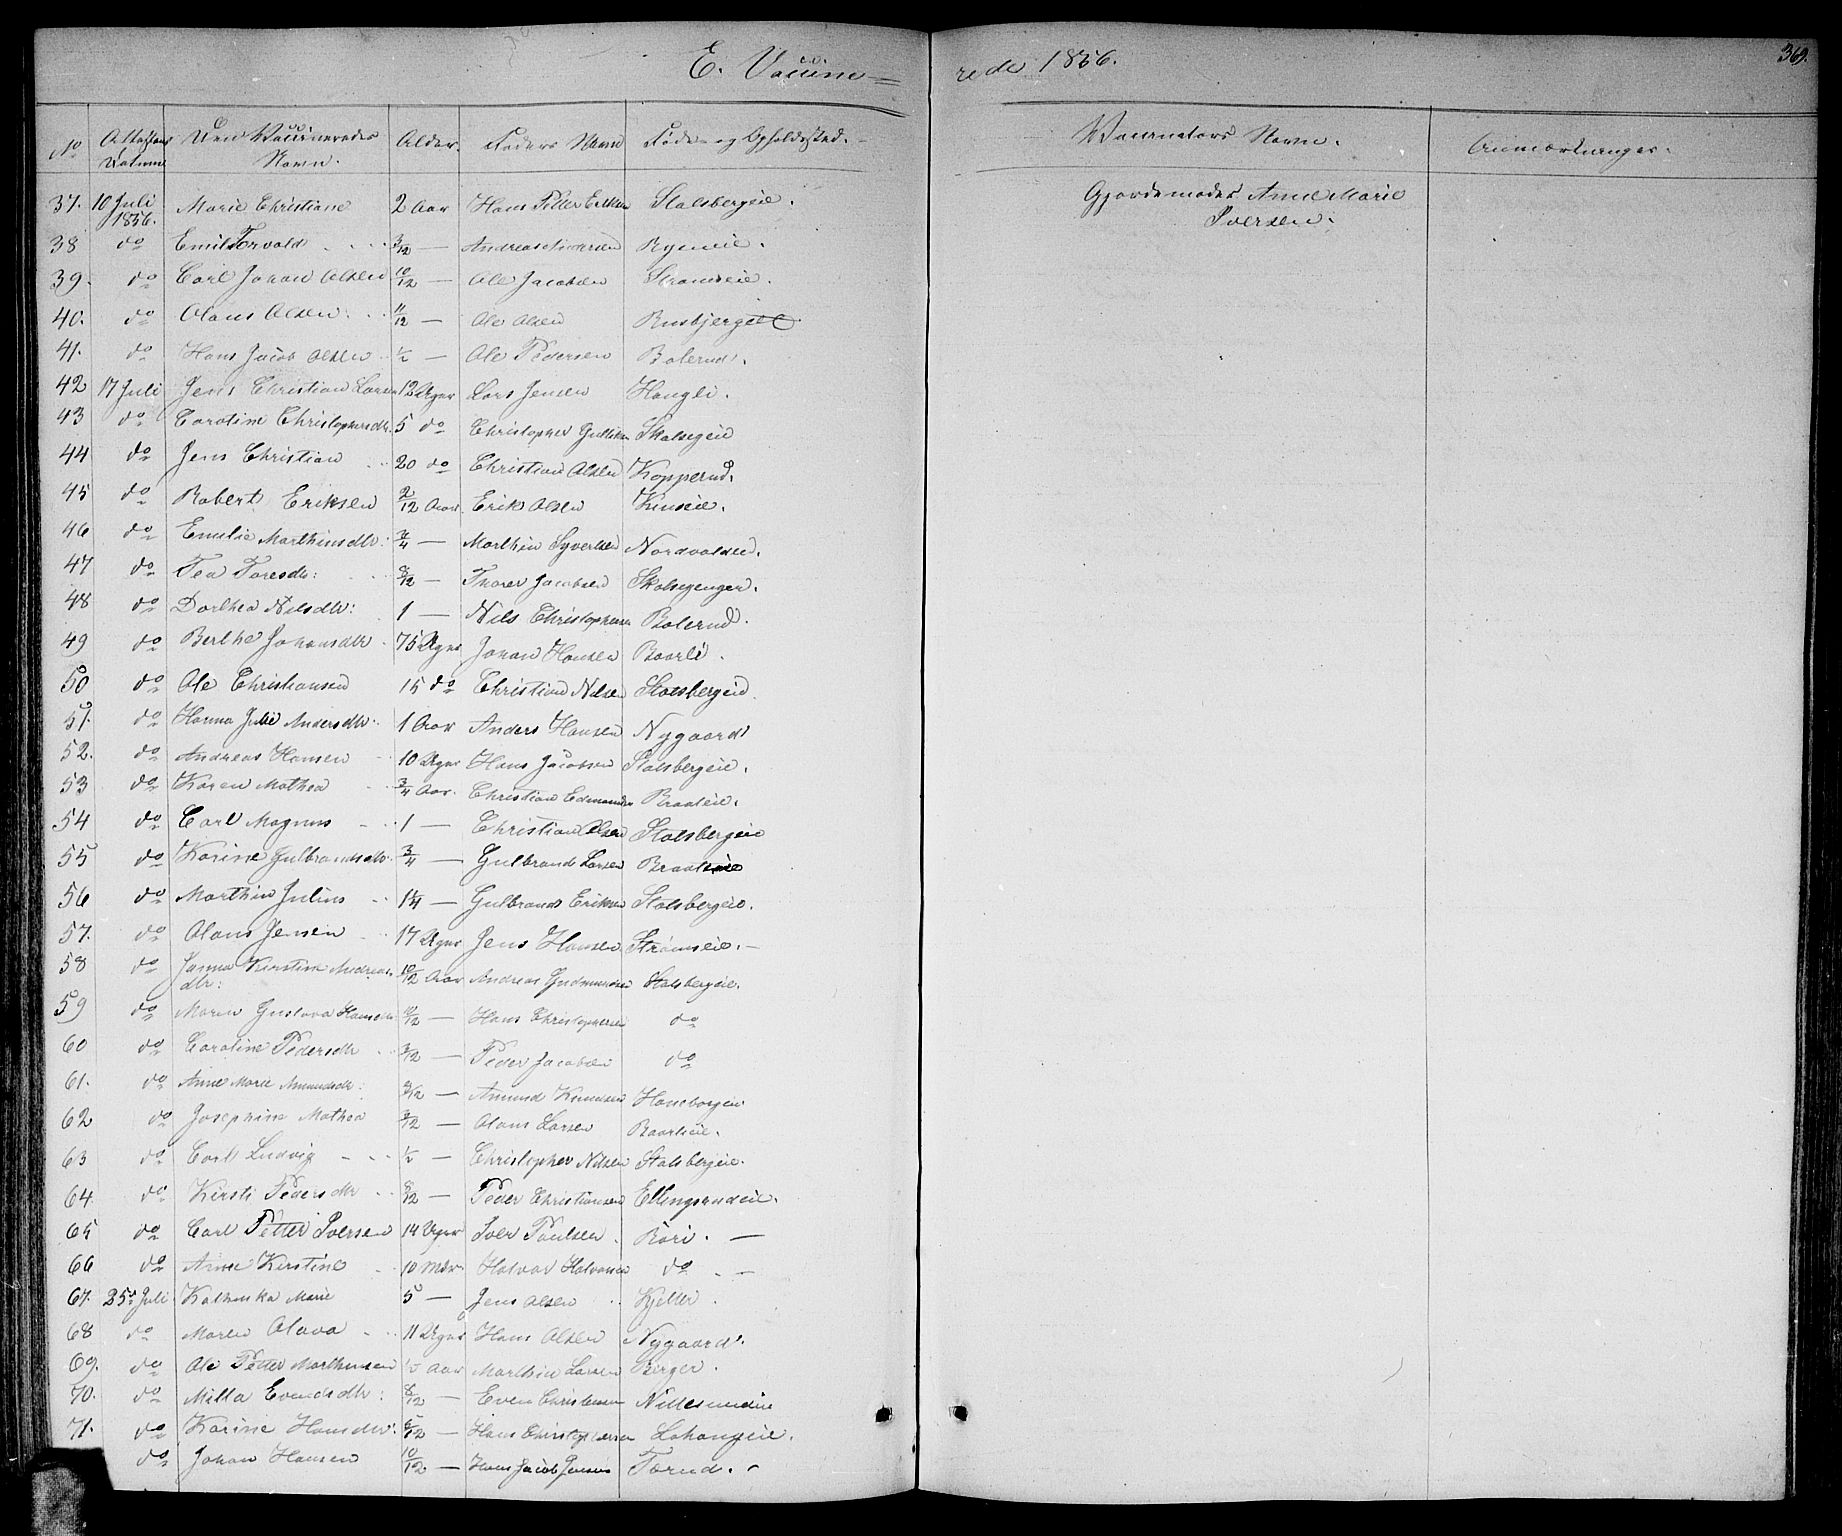 E. Vaccine=
rede 1856.
369.
No Attestens Datum Den Vaccineredes Navn. Alder. Faders Navn Føde- og Opholdssted.- Vaccinators Navn. Anmærkninger.
37. 10 Juli 1856. Marie Christiane 2 Aar Hans Petter Eriksen Stalsbergeie. Gjordemoder Anne Marie Iversen.
38 do Emil Torvald 3/12 — Andreas Andersen Ryeneie.
39. do Carl Johan Olsen 10/12 — Ole Jacobsen Strømseie.
40. do Olaus Olsen. 11/12 — Ole Olsen Busbjerget
41. do Hans Jacob Olsen 1/2 — Ole Pedersen Bolerud.
42 17 Juli Jens Christian Larsen 12 Uger Lars Jensen Haugli.
43 do Caroline Christophersdtr. 5 do Christopher Gulliksen Skalsegeie
44 do Jens Christian 20 do Christian Olsen Kopperud.
45 do Robert Eriksen 2/12 Aar Erik Olsen
46 do Emilie Marthinsdtr. 3/4 — Marthin Syversen Nordvoldeie.
47 do Tea Toresdtr: 8/12 — Thorer Jacobsen
48 do Dorthea Nilsdtr: 1 — Nils Christophersen Bolerud.
49 do Berthe Johansdtr 75 Uger Johan Hansen Baarli.
50 do Ole Christiansen 15 do Christian Nilsen Stalsbergeie
51. do Hanna Julie Andersdtr. 1 Aar Anders Hansen Nygaard
52. do Andreas Hansen 10 Uger Hans Jacobsen Stalsbergeie.
53 do Karen Mathea 3/4 Aar. Christian Edmundsen Braateie.
54 do Carl Magnus 1 — Christian Olsen Stalsbergeie
55 do Karine Gulbrandsdtr. 3/4 — Gulbrand Larsen Braateie
56 do Marthin Julius 1 1/4 — Gulbrand Eriksen Stalsbergeie.
57. do Olaus Jensen 17 Uger Jens Hansen Strømseie.—
58 do Janna Kirstine Andreasdtr: 10/12 Aar Andreas Gudmundsen Stalsbergeie.
59 do Maren Gustava Hansdtr 10/12 — Hans Christophersen do
60 do Caroline Pedersdtr 3/12 — Peder Jacobsen do
61. do Anne Marie Amundsdtr. 9/12 — Amund Knudsen Haneborgeie
62 do Josephine Mathea 9/12 — Olaus Larsen Baarlieie.
63 do Carl Ludvig 1/2 — Christopher Nilsen Stalsbergeie.
64 do Kirsti Pedersdtr 8/12 — Peder Christiansen Ellingsrudeie.
65 do Carl Petter Iversen 14 Uger Iver Paulsen. Röri. —
66 do Anne Kirstine 10 Mdr. Halvor Halvorsen do. —
67. 25de Juli Marie 5 — Jens Olsen Kjeller.
68 do Maren Olava 11 Uger Hans Olsen Nygaard.
69. do Ole Petter Marthinsen 1/2 Aar Marthin Larsen Berger.
70. do Milla Evensdtr: 8/12 — Even Christensen Nittesundeie
71. do Karine Hansdtr: 5/12 — Hans Christophersen Lohangeie.
do Johan Hansen 10/12 — Hans Jacob Jensen Tærud.